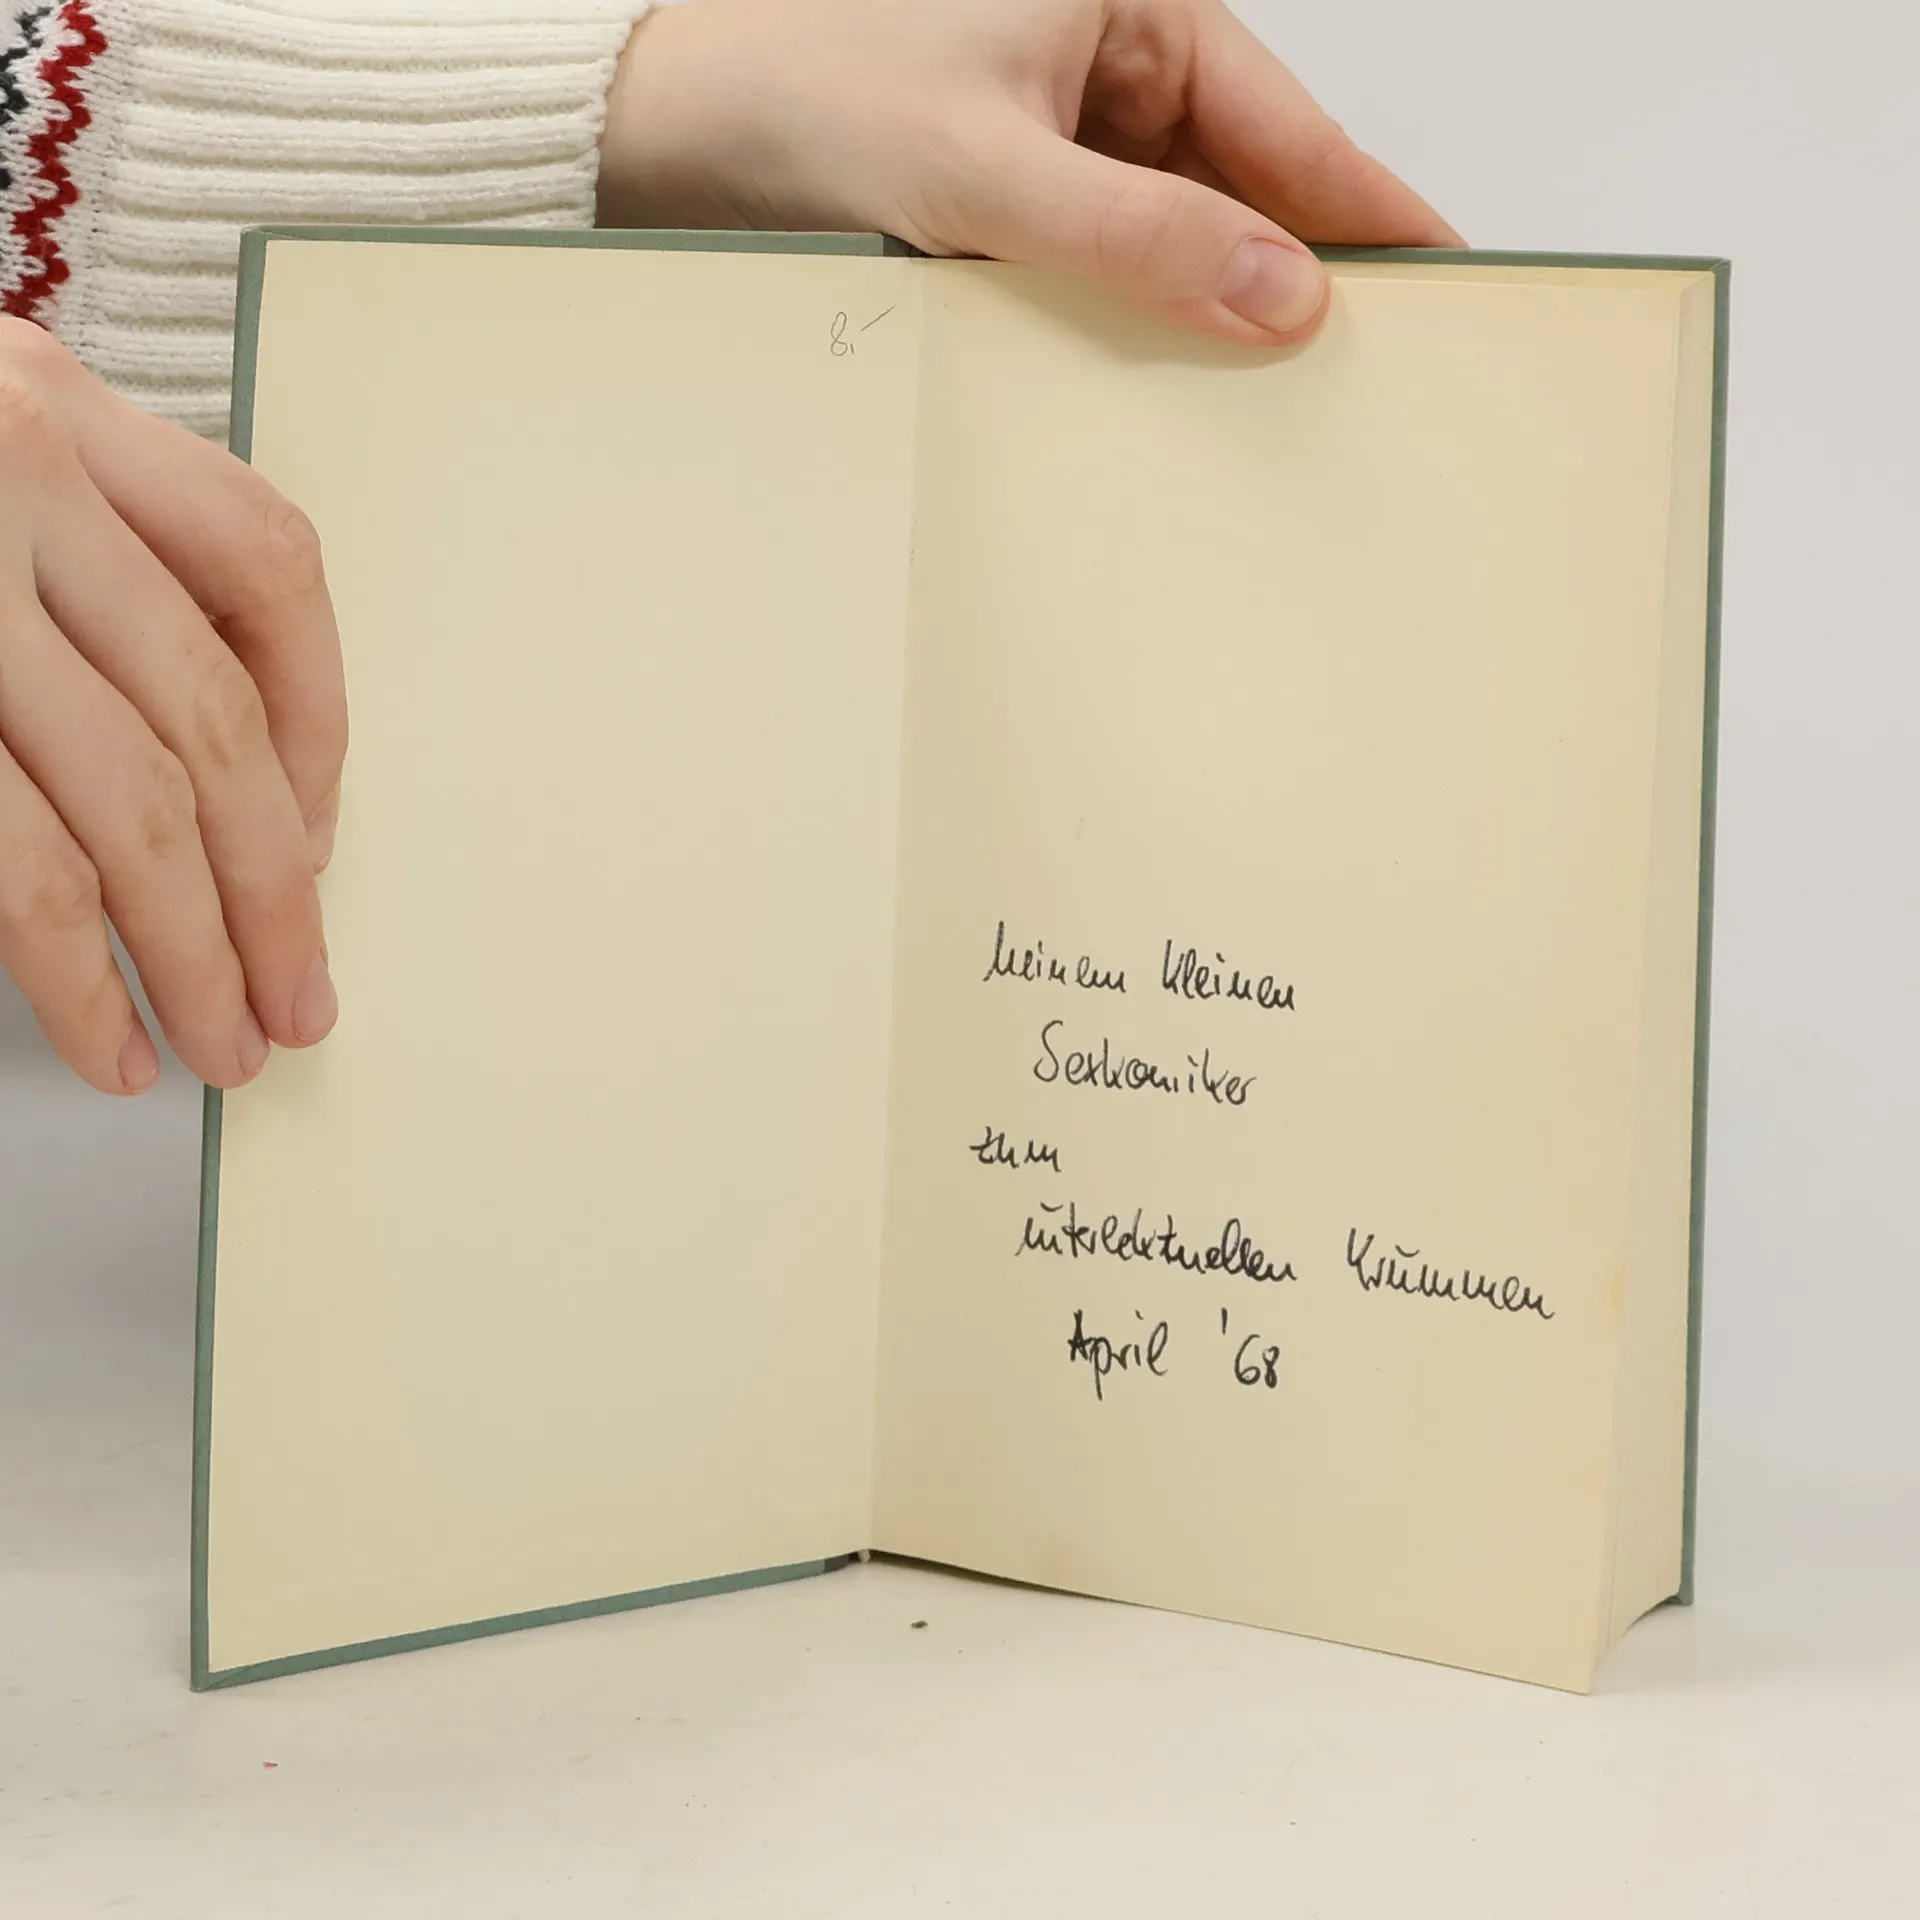 8,-
meinem kleinen
Sexkomiker
zum
intelektuellen Krümmen
April '68